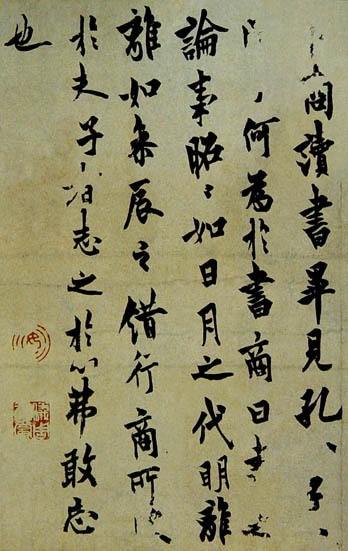 商讀書畢見孔〻子〻
何為於書商曰書
論事昭〻如日月之代明離
離如參辰之錯行商所
於夫子 志之於心弗敢忘
也